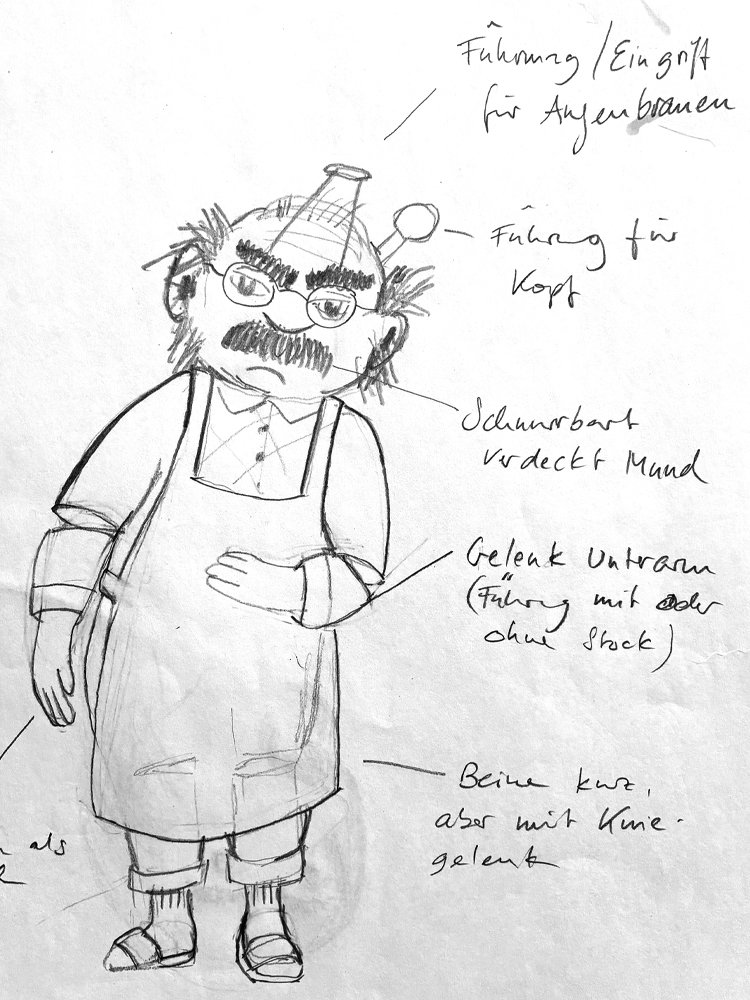 Führung/Eingriff
für Augenbrauen
Führung für
Kopf
Schnurrbart
verdeckt Mund
Gelenk Untrarm
(Führung mit oder
ohne Stock)
Beine kurz,
aber mit Knie-
gelenk
als